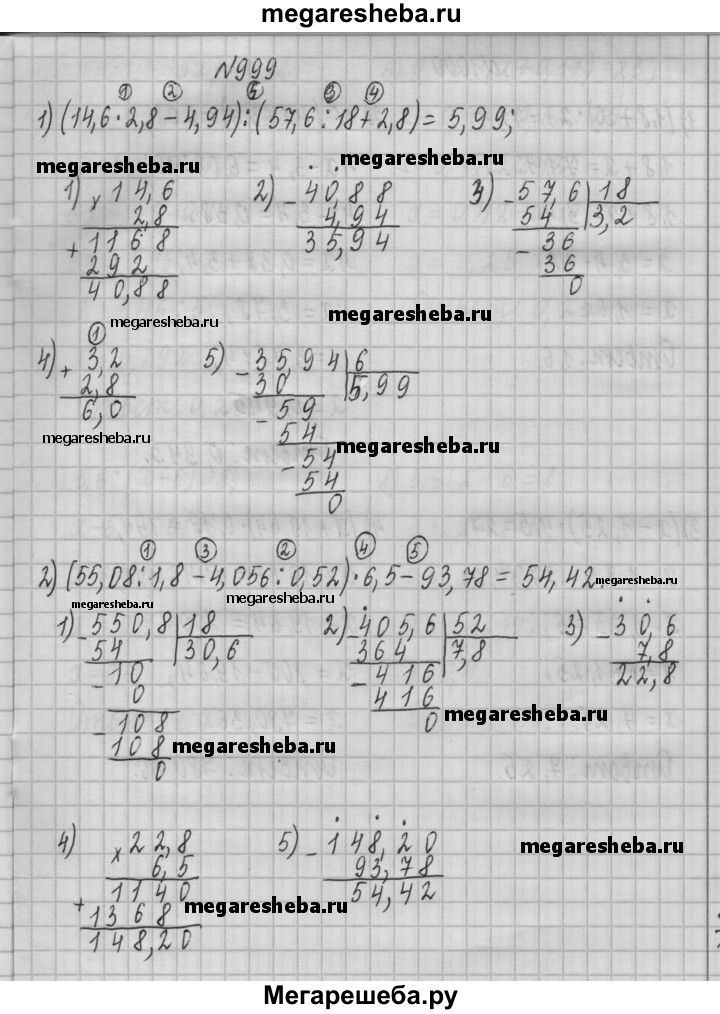 megaresheba.ru
№999
① ② ⑤ ③ ④
1) (14,6·2,8-4,94):(57,6:18+2,8)= 5,99;
megaresheba.ru megaresheba.ru
1) × 14,6 2) - 40,88 3) - 57,6 | 18
2,8 4,94 54 3,2
+ 1168 35,94 - 36
292 36
40,88 0
megaresheba.ru megaresheba.ru
①
4) + 3,2 5) - 35,94 | 6
2,8 30 5,99
6,0 - 59
megaresheba.ru 54 megaresheba.ru
- 54
54
0
① ③ ② ④ ⑤
2) (55,08:1,8-4,056:0,52)·6,5-93,78 = 54,42 megaresheba.ru
megaresheba.ru megaresheba.ru
1) - 550,8 | 18 2) - 405,6 | 52 3) - 30,6
54 30,6 364 7,8 7,8
- 10 - 416 22,8
0 416
- 108 0 megaresheba.ru
108 megaresheba.ru
0
4) × 22,8 5) - 148,20 megaresheba.ru
6,5 93,78
1140 54,42
+ 1368 megaresheba.ru
148,20
Мегарешеба.ру